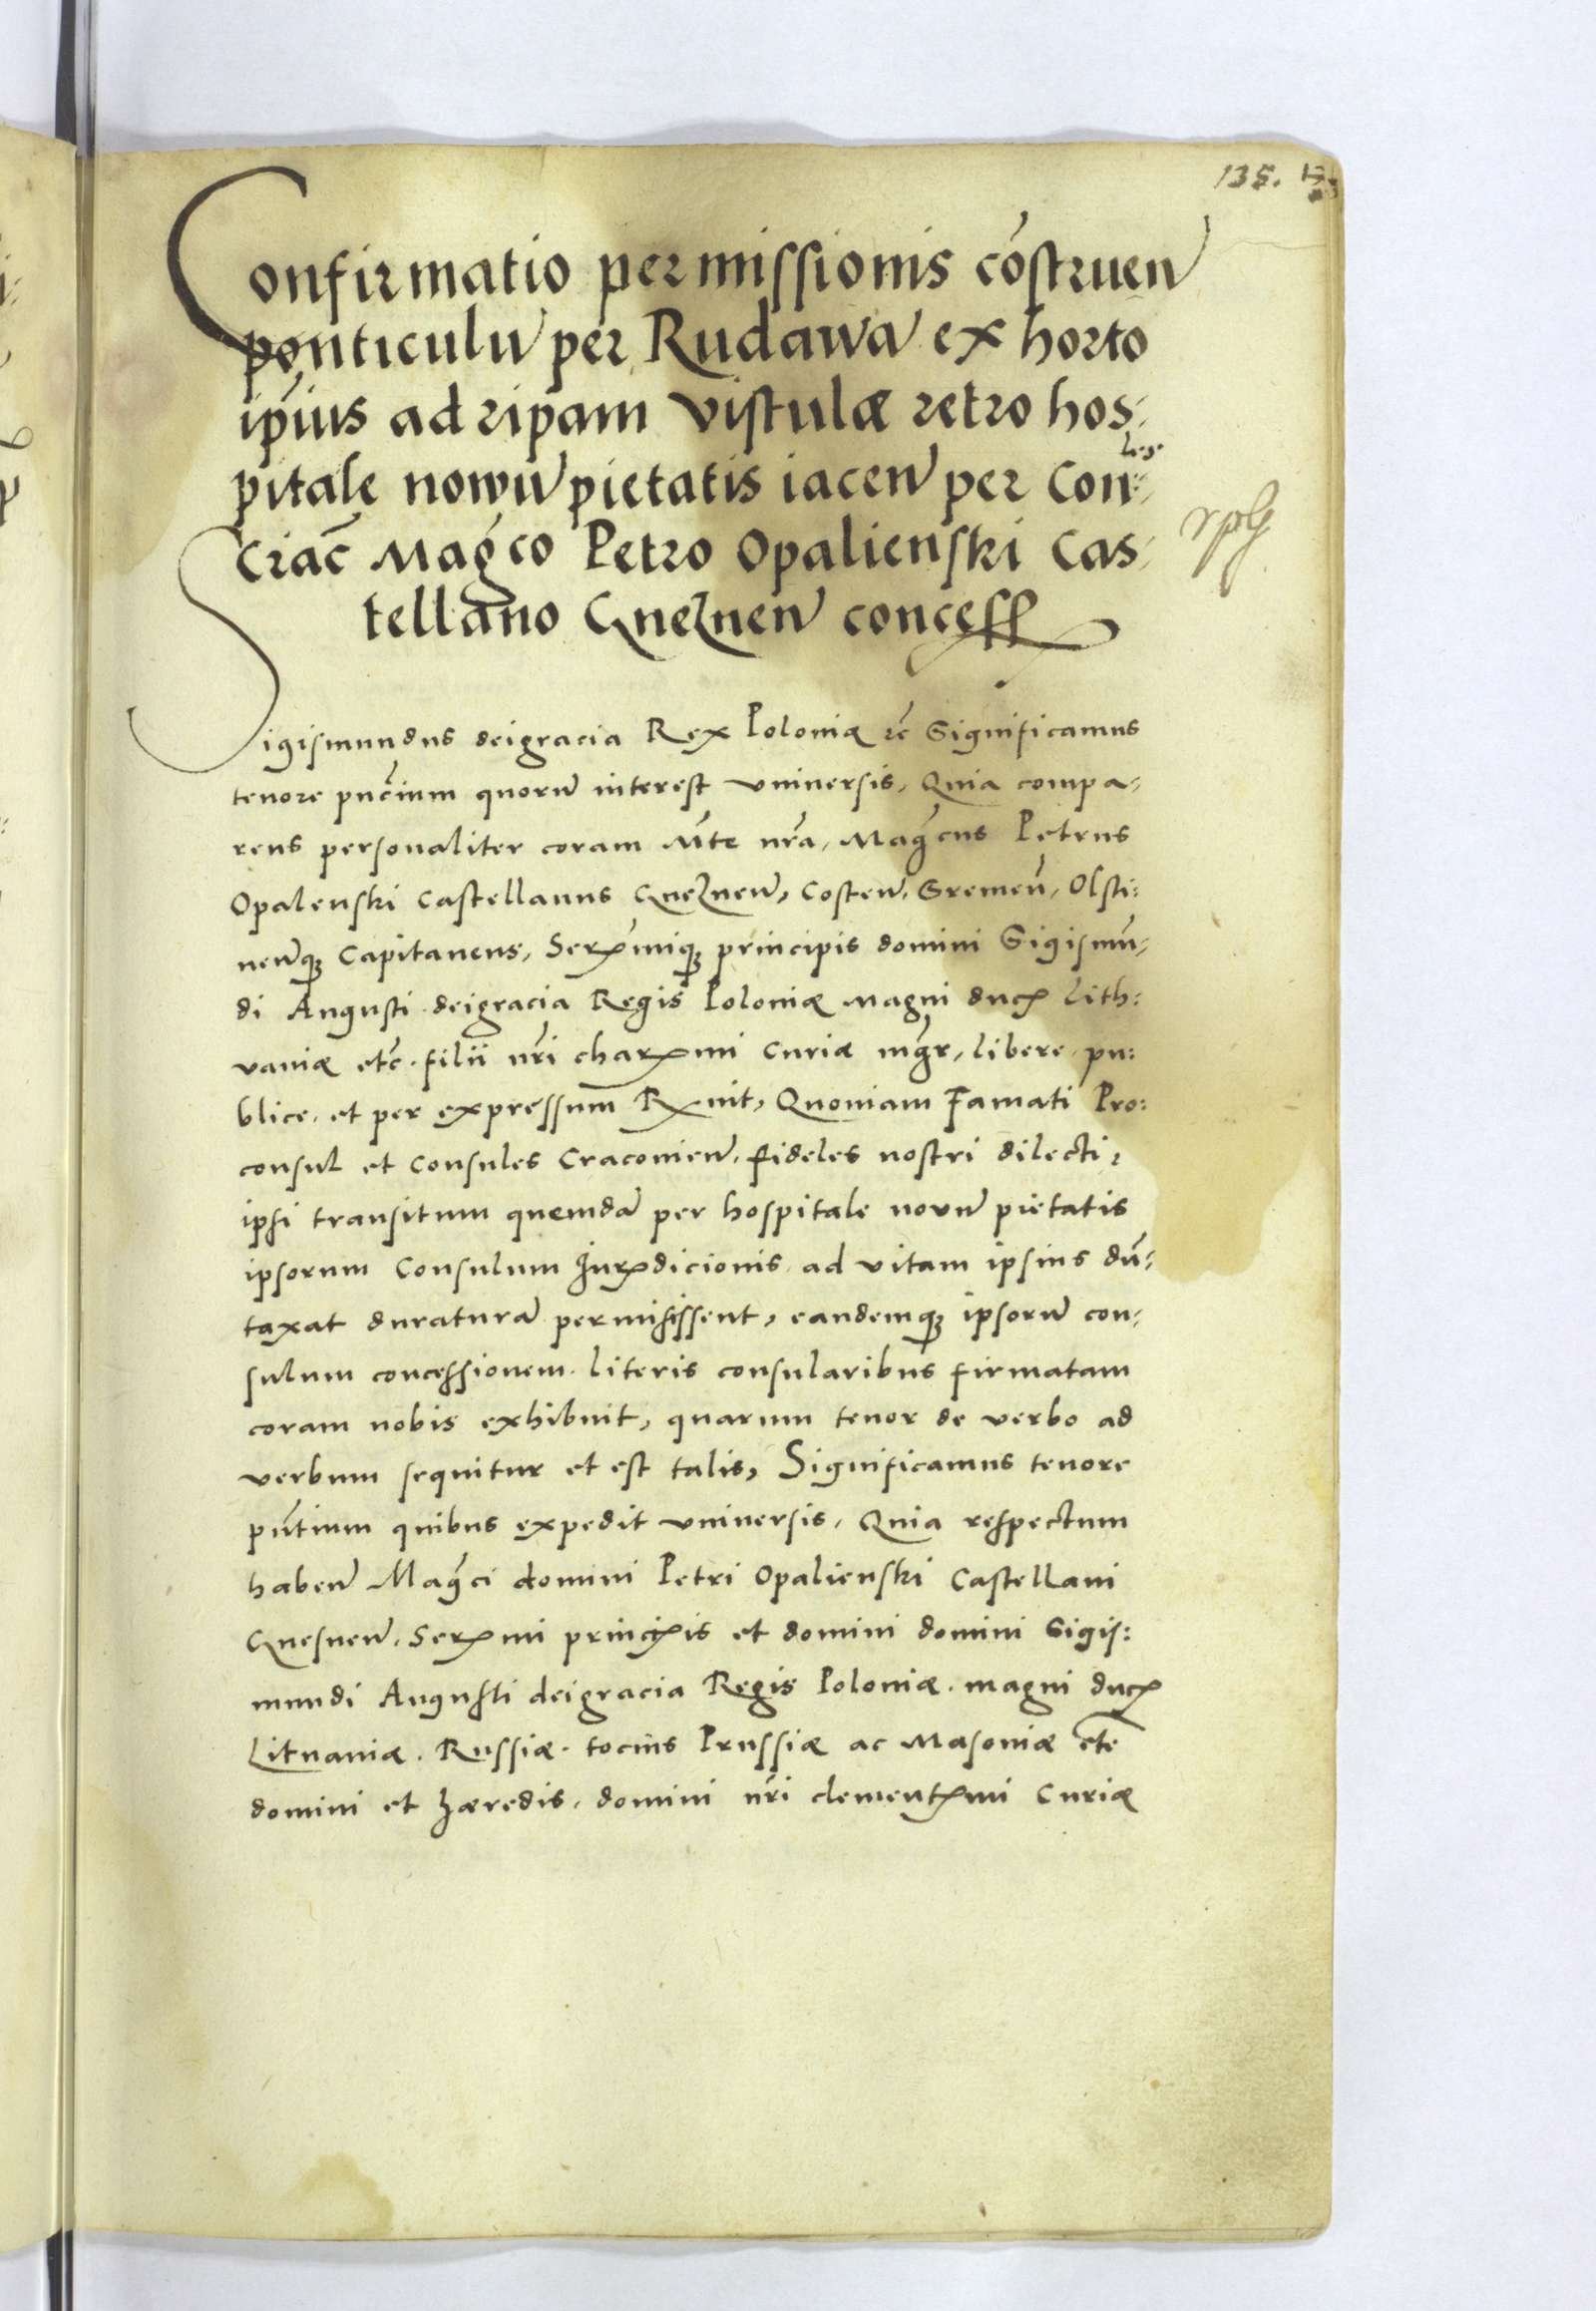 135.
Confirmatio permissionis cõstruen
ponticulũ per Rudawã ex horto
ip̃ius ad ripam Vistulæ retro hos-
pitale nowũ pietatis iacen per Con-
Criac̃ Mag̃co Petro Opalienski Cas-
tellano Gneznen concess
Sigismundus deigracia Rex Poloniæ rc̃ Significamus
tenore pñcium quorũ interest vniuersis, Quia compa-
rens personaliter coram Mte nr̃a, Mag̃cus Petrus
Opalenski Castellanus Gneznen, Costen, Sremeñ, Olsti:
nenq; Capitaneus, Serṃmiq; principis domini Sigismũ-
di Augusti deigracia Regis Poloniæ magni ducꝭ Lith:
vaniæ etc̃. filii nr̃i charꝭmi Curiæ mg̃r, libere pu:
blice, et per expressum Rꝭuit, Quoniam Famati Pro:
consul et Consules Cracouien, fideles nostri dilecti,
ipsi transitum quemdã per hospitale nouũ pietatis
ipsorum Consulum Jurꝭdicionis ad vitam ipsius dũ-
taxat duraturã permisissent, eandemq; ipsorũ con-
sulum concessionem literis consularibus firmatam
coram nobis exhibuit, quarum tenor de verbo ad
verbum sequitur et est talis, Significamus tenore
pñtium quibus expedit vniuersis, Quia respectum
haben Mag̃ci domini Petri Opalienski Castellani
Gnesnen, Serꝭmi principis et domini domini Sigis:
mundi Augusti deigracia Regis Poloniæ. magni ducꝭ
Lituaniæ. Russiæ. tocius Prussiæ ac Masouiæ etc̃
domini et hæredis, domini nr̃i clementꝭmi Curiæ